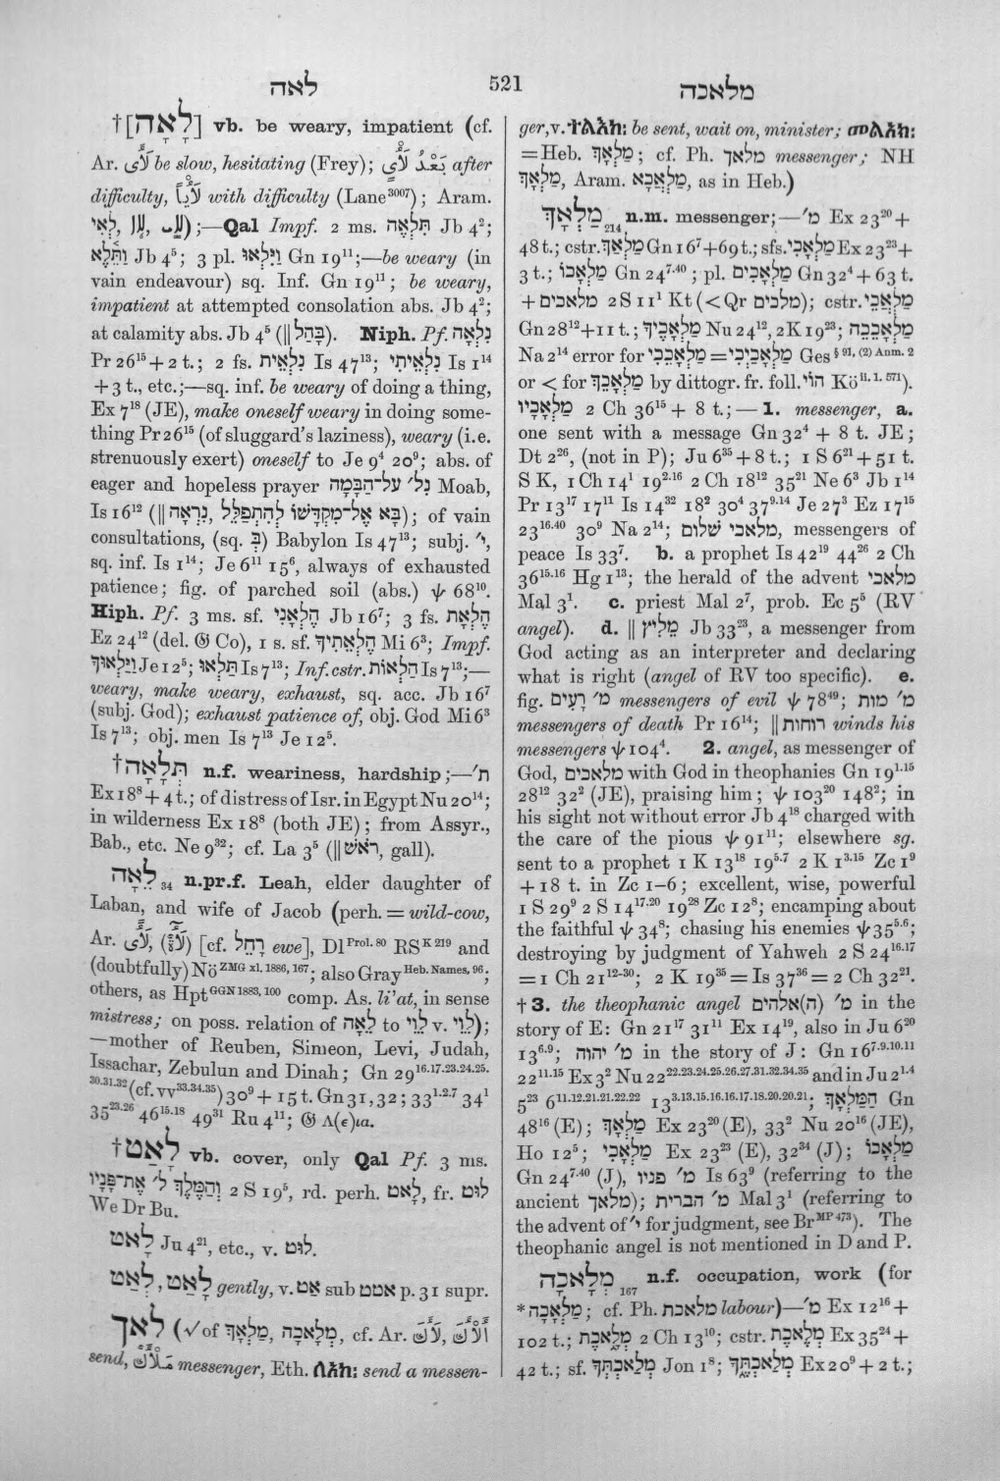 לאה
521
מלאכה
†[לָאָה] vb. be weary, impatient (cf.
Ar. be slow, hesitating (Frey); after
difficulty, with difficulty (Lane³⁰⁰⁷); Aram.
;—Qal Impf. 2 ms. תִּלְאֶה Jb 4²;
וַתֵּלֶא Jb 4⁵; 3 pl. וַיִּלְאוּ Gn 19¹¹;—be weary (in
vain endeavour) sq. Inf. Gn 19¹¹; be weary,
impatient at attempted consolation abs. Jb 4²;
at calamity abs. Jb 4⁵ (‖ בָּהַל). Niph. Pf. נִלְאָה
Pr 26¹⁵ + 2 t.; 2 fs. נִלְאֵית Is 47¹³; נִלְאֵיתִי Is 1¹⁴
+ 3 t., etc.;—sq. inf. be weary of doing a thing,
Ex 7¹⁸ (JE), make oneself weary in doing some-
thing Pr 26¹⁵ (of sluggard's laziness), weary (i.e.
strenuously exert) oneself to Je 9⁴ 20⁹; abs. of
eager and hopeless prayer נִל׳ עַל־הַבָּמָה Moab,
Is 16¹² (‖ בָּא אֶל־מִקְדָּשׁוֹ לְהִתְפַּלֵּל, נִרְאָה); of vain
consultations, (sq. בְּ) Babylon Is 47¹³; subj. י׳,
sq. inf. Is 1¹⁴; Je 6¹¹ 15⁶, always of exhausted
patience; fig. of parched soil (abs.) ψ 68¹⁰.
Hiph. Pf. 3 ms. sf. הֶלְאָנִי Jb 16⁷; 3 fs. הֶלְאָת
Ez 24¹² (del. 𝔊 Co), 1 s. sf. הֶלְאֵתִיךָ Mi 6³; Impf.
וַיַּלְאוּךָ Je 12⁵; תַּלְאוּ Is 7¹³; Inf. cstr. הַלְאוֹת Is 7¹³;—
weary, make weary, exhaust, sq. acc. Jb 16⁷
(subj. God); exhaust patience of, obj. God Mi 6³
Is 7¹³; obj. men Is 7¹³ Je 12⁵.
†תְּלָאָה n.f. weariness, hardship;—ת׳
Ex 18⁸ + 4 t.; of distress of Isr. in Egypt Nu 20¹⁴;
in wilderness Ex 18⁸ (both JE); from Assyr.,
Bab., etc. Ne 9³²; cf. La 3⁵ (‖ רֹאשׁ, gall).
לֵאָה ₃₄ n.pr.f. Leah, elder daughter of
Laban, and wife of Jacob (perh. = wild-cow,
Ar. [cf. רָחֵל ewe], Dl ᴾʳᵒˡ· ⁸⁰ RS ᴷ ²¹⁹ and
(doubtfully) Nö ᶻᴹᴳ ˣˡ· ¹⁸⁸⁶, ¹⁶⁷; also Gray ᴴᵉᵇ· ᴺᵃᵐᵉˢ, ⁹⁶;
others, as Hpt ᴳᴳᴺ ¹⁸⁸³, ¹⁰⁰ comp. As. li'at, in sense
mistress; on poss. relation of לֵאָה to לֵוִי v. לֵוִי);
—mother of Reuben, Simeon, Levi, Judah,
Issachar, Zebulun and Dinah; Gn 29¹⁶·¹⁷·²³·²⁴·²⁵·
³⁰·³¹·³² (cf. vv ³³·³⁴·³⁵) 30⁹ + 15 t. Gn 31, 32; 33¹·²·⁷ 34¹
35²³·²⁶ 46¹⁵·¹⁸ 49³¹ Ru 4¹¹; 𝔊 Λ(ε)ια.
†לָאַט vb. cover, only Qal Pf. 3 ms.
וְהַמֶּלֶךְ ל׳ אֶת־פָּנָיו 2 S 19⁵, rd. perh. לָאט, fr. לוט
We Dr Bu.
לָאט Ju 4²¹, etc., v. לוט.
לְאַט, לָאַט gently, v. אַט sub אטט p. 31 supr.
לאך (√of מַלְאָךְ, מְלָאכָה, cf. Ar.
send, messenger, Eth. ለአከ: send a messen-
ger, v. ተልእከ: be sent, wait on, minister; መልአክ:
= Heb. מַלְאָךְ; cf. Ph. מלאך messenger; NH
מַלְאָךְ, Aram. מַלְאֲכָא, as in Heb.)
מַלְאָךְ ₂₁₄ n.m. messenger;—מ׳ Ex 23²⁰ +
48 t.; cstr. מַלְאַךְ Gn 16⁷ + 69 t.; sfs. מַלְאָכִי Ex 23²³ +
3 t.; מַלְאָכוֹ Gn 24⁷·⁴⁰; pl. מַלְאָכִים Gn 32⁴ + 63 t.
+ מלאכים 2 S 11¹ Kt (< Qr מלכים); cstr. מַלְאֲכֵי
Gn 28¹² + 11 t.; מַלְאָכֶיךָ Nu 24¹², 2 K 19²³; מַלְאָכֵכֵה
Na 2¹⁴ error for מַלְאָכֵכִי = מַלְאָכַיִכִי Ges § ⁹¹, ⁽²⁾ ᴬⁿᵐ· ²
or < for מַלְאָכֵךְ by dittogr. fr. foll. הוֹי Kö ⁱⁱ· ¹· ⁵⁷¹).
מַלְאָכָיו 2 Ch 36¹⁵ + 8 t.;—1. messenger, a.
one sent with a message Gn 32⁴ + 8 t. JE;
Dt 2²⁶, (not in P); Ju 6³⁵ + 8 t.; 1 S 6²¹ + 51 t.
S K, 1 Ch 14¹ 19²·¹⁶ 2 Ch 18¹² 35²¹ Ne 6³ Jb 1¹⁴
Pr 13¹⁷ 17¹¹ Is 14³² 18² 30⁴ 37⁹·¹⁴ Je 27³ Ez 17¹⁵
23¹⁶·⁴⁰ 30⁹ Na 2¹⁴; מלאכי שלום, messengers of
peace Is 33⁷. b. a prophet Is 42¹⁹ 44²⁶ 2 Ch
36¹⁵·¹⁶ Hg 1¹³; the herald of the advent מלאכי
Mal 3¹. c. priest Mal 2⁷, prob. Ec 5⁵ (RV
angel). d. ‖ מֵלִיץ Jb 33²³, a messenger from
God acting as an interpreter and declaring
what is right (angel of RV too specific). e.
fig. מ׳ רָעִים messengers of evil ψ 78⁴⁹; מ׳ מות
messengers of death Pr 16¹⁴; ‖ רוחות winds his
messengers ψ 104⁴. 2. angel, as messenger of
God, מלאכים with God in theophanies Gn 19¹·¹⁵
28¹² 32² (JE), praising him; ψ 103²⁰ 148²; in
his sight not without error Jb 4¹⁸ charged with
the care of the pious ψ 91¹¹; elsewhere sg.
sent to a prophet 1 K 13¹⁸ 19⁵·⁷ 2 K 1³·¹⁵ Zc 1⁹
+ 18 t. in Zc 1–6; excellent, wise, powerful
1 S 29⁹ 2 S 14¹⁷·²⁰ 19²⁸ Zc 12⁸; encamping about
the faithful ψ 34⁸; chasing his enemies ψ 35⁵·⁶;
destroying by judgment of Yahweh 2 S 24¹⁶·¹⁷
= 1 Ch 21¹²⁻³⁰; 2 K 19³⁵ = Is 37³⁶ = 2 Ch 32²¹.
†3. the theophanic angel מ׳ (ה)אלהים in the
story of E: Gn 21¹⁷ 31¹¹ Ex 14¹⁹, also in Ju 6²⁰
13⁶·⁹; מ׳ יהוה in the story of J: Gn 16⁷·⁹·¹⁰·¹¹
22¹¹·¹⁵ Ex 3² Nu 22²²·²³·²⁴·²⁵·²⁶·²⁷·³¹·³²·³⁴·³⁵ and in Ju 2¹·⁴
5²³ 6¹¹·¹²·²¹·²¹·²²·²² 13³·¹³·¹⁵·¹⁶·¹⁶·¹⁷·¹⁸·²⁰·²⁰·²¹; הַמַּלְאָךְ Gn
48¹⁶ (E); מַלְאָךְ Ex 23²⁰ (E), 33² Nu 20¹⁶ (JE),
Ho 12⁵; מַלְאָכִי Ex 23²³ (E), 32³⁴ (J); מַלְאָכוֹ
Gn 24⁷·⁴⁰ (J), מ׳ פניו Is 63⁹ (referring to the
ancient מלאך); מ׳ הברית Mal 3¹ (referring to
the advent of י׳ for judgment, see Br ᴹᴾ ⁴⁷³). The
theophanic angel is not mentioned in D and P.
מְלָאכָה ₁₆₇ n.f. occupation, work (for
*מַלְאָכָה; cf. Ph. מלאכת labour)—מ׳ Ex 12¹⁶ +
102 t.; מְלֶאכֶת 2 Ch 13¹⁰; cstr. מְלֶאכֶת Ex 35²⁴ +
42 t.; sf. מְלַאכְתְּךָ Jon 1⁸; מְלַאכְתֶּךָ Ex 20⁹ + 2 t.;